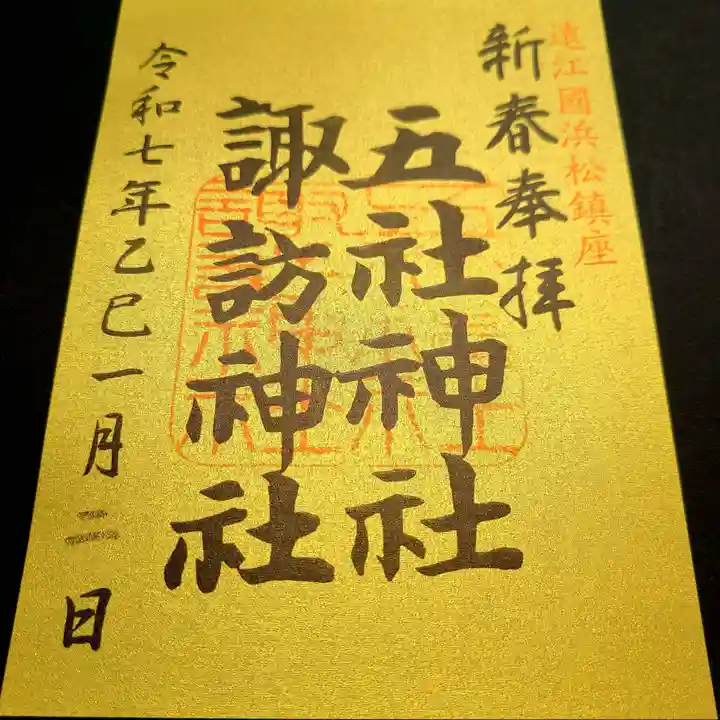 遠江國浜松鎮座
新春奉拝
五社神社
諏訪神社
令和七年乙巳一月 日